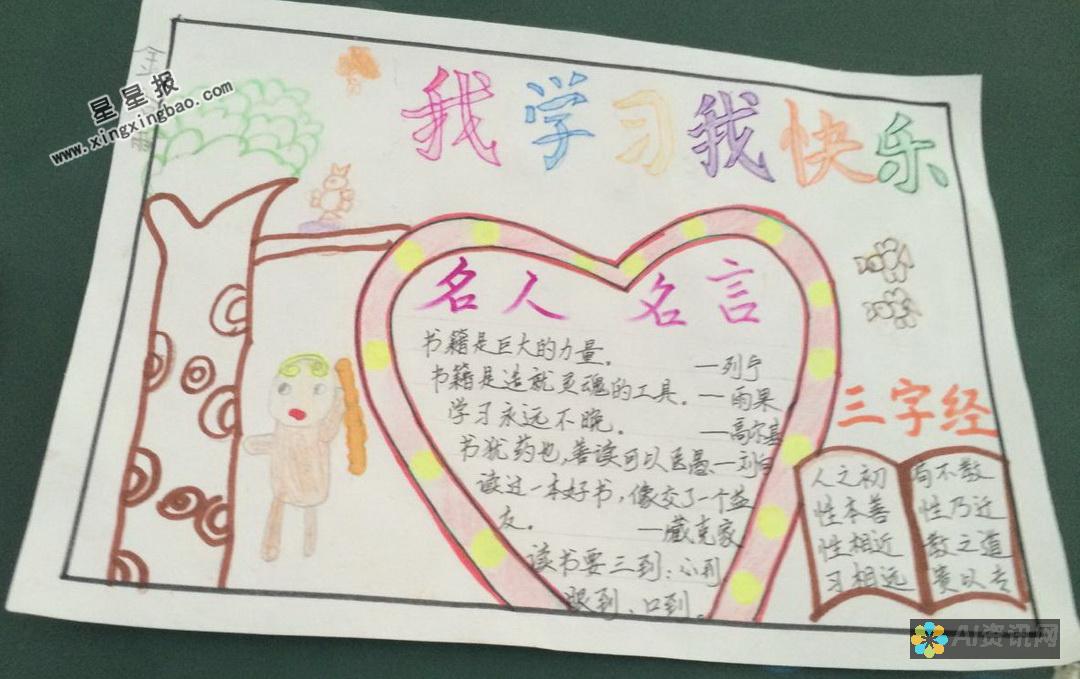 星星报
www.xingxingbao.com
我学习我快乐
名人名言
书籍是巨大的力量。
—列宁
书籍是造就灵魂的工具。—雨果
学习永远不晚。
—高尔基
书犹药也,善读可以医愚—刘向
读过一本好书,像交了一个益
友。 —臧克家
读书要三到:心到
眼到、口到。
三字经
人之初
性本善
性相近
习相远
苟不教
性乃迁
教之道
贵以专
AI资讯网